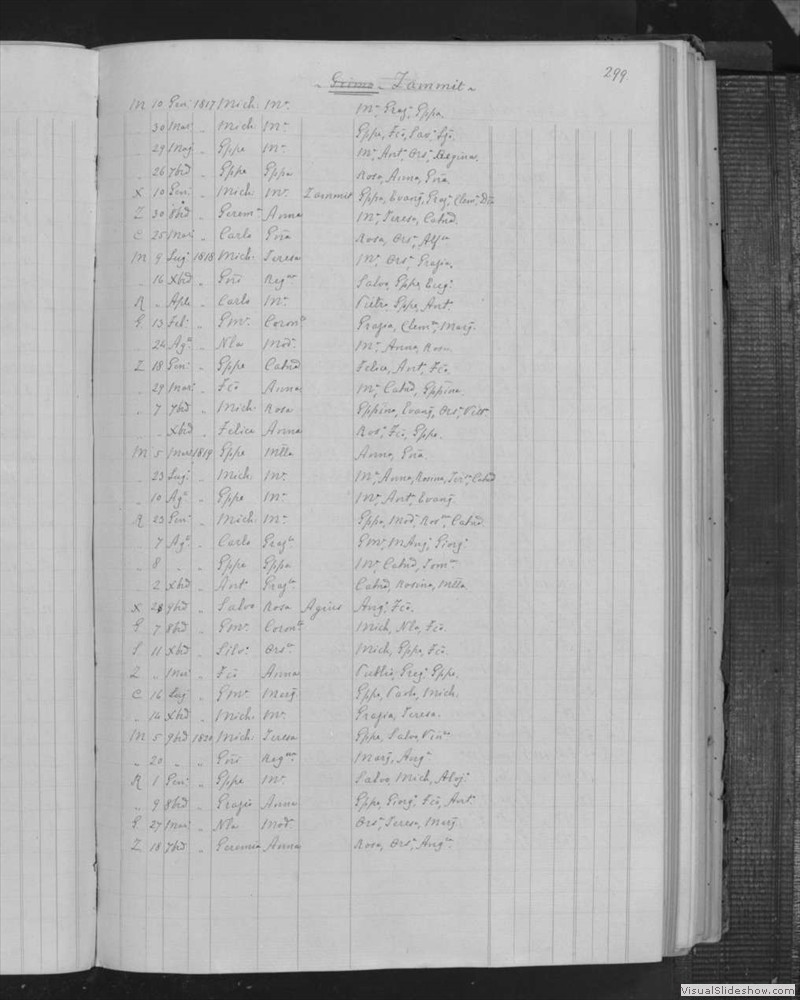 299.
Grima - Zammit
M 10 Gen 1817 Mich: Mª Mª Graz: Gppa.
30 Mar: " Mich: Mª Gppa, Fcã, Sav:
29 Mag " Gppe Mª Mª Ant: Ors: Regina.
" 26 7brê " Gppe Gppa Rosa, Anna, Gña
X 10 Gen: " Mich: Mª Zammit Gppa, Evang: Graz: Clem:
Z 30 8brê " Gerem: Anna Mª Teresa, Catnã.
C 25 Mar: " Carlo Gña Rosa, Ors:
M 9 Lug: 1818 Mich: Teresa Mª Ors: Grazia,
" 16 Xbrê " Gñi Regna Salvo, Gppe,
R " Aple " Carlo Mª Pietro, Gppe, Ant:
G 13 Feb: " Gmª Coronª Grazia, Clem: Marg:
24 Agº " Nla Mod: Mª Anna, Rosa
Z 18 Gen: " Gppe Catnã Felice, Ant: Fcã.
" 29 Mar: " Fcõ Anna Mª Catnã, Gppina
" 7 7brê " Mich: Rosa Gppina, Evang: Ors:
" Xbrê " Felice Anna Ros: Fcã, Gppa.
M 5 Mar: 1819 Gppe Mtla Anna, Gña.
" 23 Lug: " Mich: Mª Mª Anna, Rosina, Catnã
" 10 Agº " Gppe Mª Mª Ant: Evang:
R 23 Gen: " Mich: Mª Gppa, Mod: Catnã
" 7 Agº " Carlo Grazª Gmª MAng: Giorg:
" 8 " " Gppe Gppa Mª Catnã,
" 2 Xbrê " Ant: Grazª Catnã, Rosina, Mtla
X 28 9brê " Salvo Rosa Agius Ang: Fcã.
G 7 8brê " Gmª Coronª Mich, Nla, Fcã.
S 11 Xbrê " Silv: Orsª Mich, Gppa, Fcã.
Z " Mar: " Fcõ Anna Publio, Greg: Gppe.
C 16 Lug " Gmª Marg: Gppa, Paolo, Mich.
" 14 Xbrê " Mich: Mª Grazia, Teresa.
M 5 9brê 1820 Mich: Teresa Gppa, Salvo,
" 20 " " Gñi Regna Marg: Ang:
R 1 Gen: " Gppe Mª Salvo, Mich, Aloj:
" 9 8brê " Grazio Anna Gppa, Giorg: Fcã, Ant:
G 27 Mar: " Nla Mod: Ors: Teresa, Marg:
Z 18 7brê " Geremia Anna Rosa, Ors: Ang:
VisualSlideshow.com